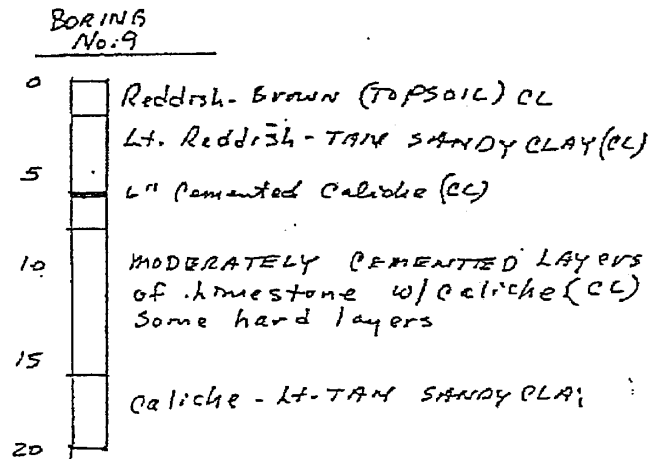 BORING
No: 9
0
Reddish-Brown (TOPSOIL) CL
Lt. Reddish-TAN SANDY CLAY (CL)
5
6" Cemented Caliche (CL)
10
MODERATELY CEMENTED LAYERS
of limestone w/ Caliche (CL)
Some hard layers
15
Caliche - Lt-TAN SANDY CLAY
20